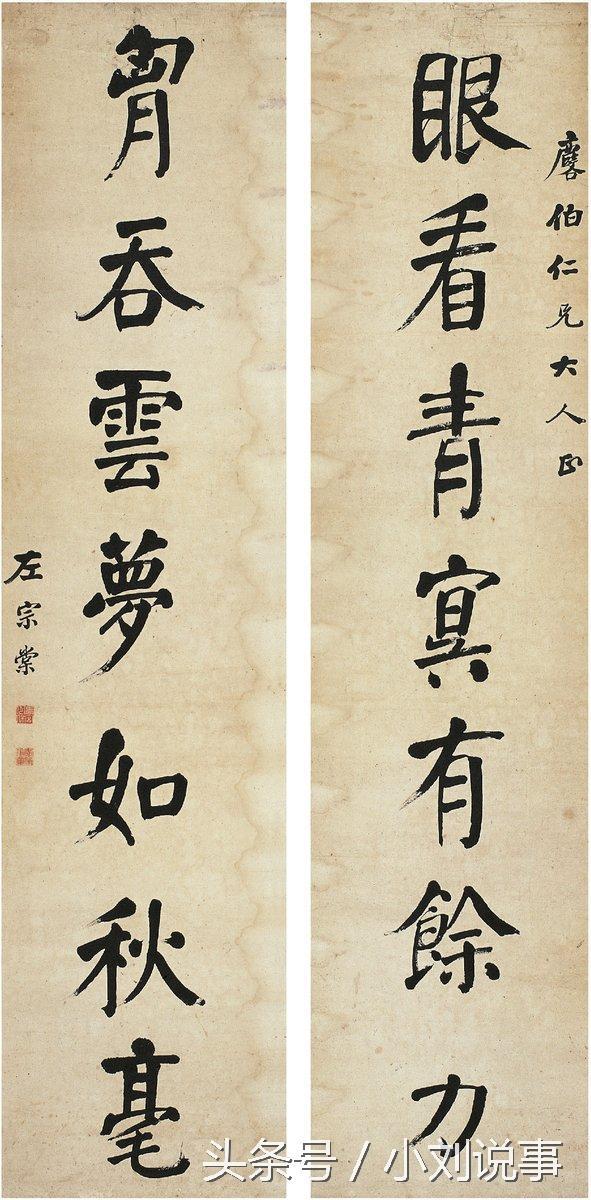 麐伯仁兄大人正
眼看青冥有餘力
胷吞雲夢如秋毫
左宗棠
头条号 / 小刘说事